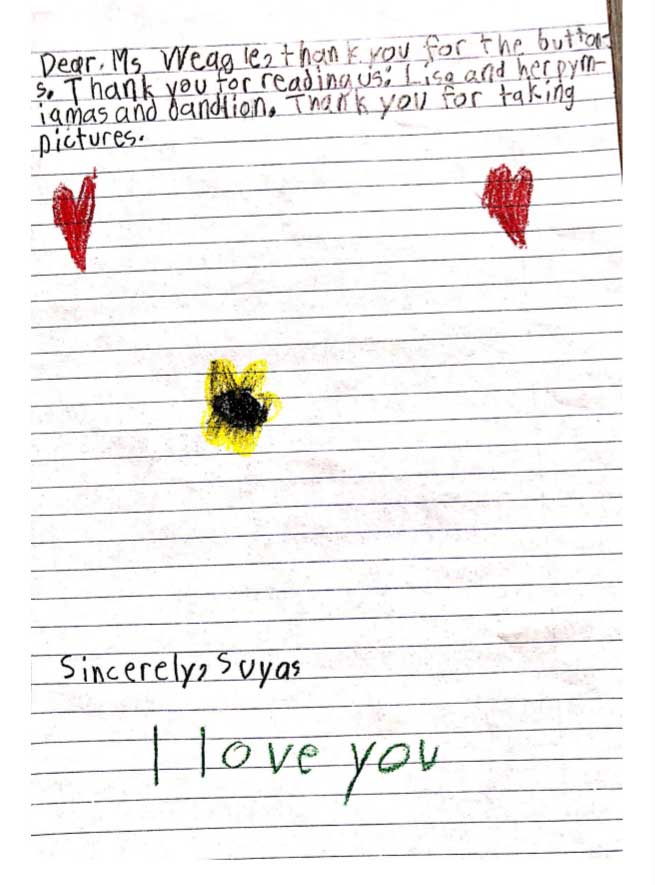 Dear. Ms Weagle, thank you for the button-
s. Thank you for reading us: Lisa and her pym-
iamas and dandlion. Thank you for taking
pictures.
Sincerely, Suyas
I love you